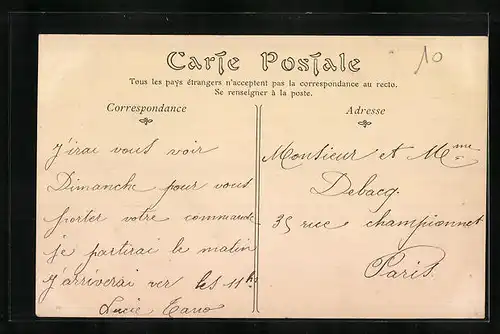 10
Carte Postale
Tous les pays étrangers n'acceptent pas la correspondance au recto.
Se renseigner à la poste.
Correspondance
J'irai vous voir
Dimanche pour vous
porter votre commande
je partirai le matin
j'arriverai ver les 11h
Lucie
Adresse
Monsieur et Mme
Debacq.
35 rue championnet
Paris.